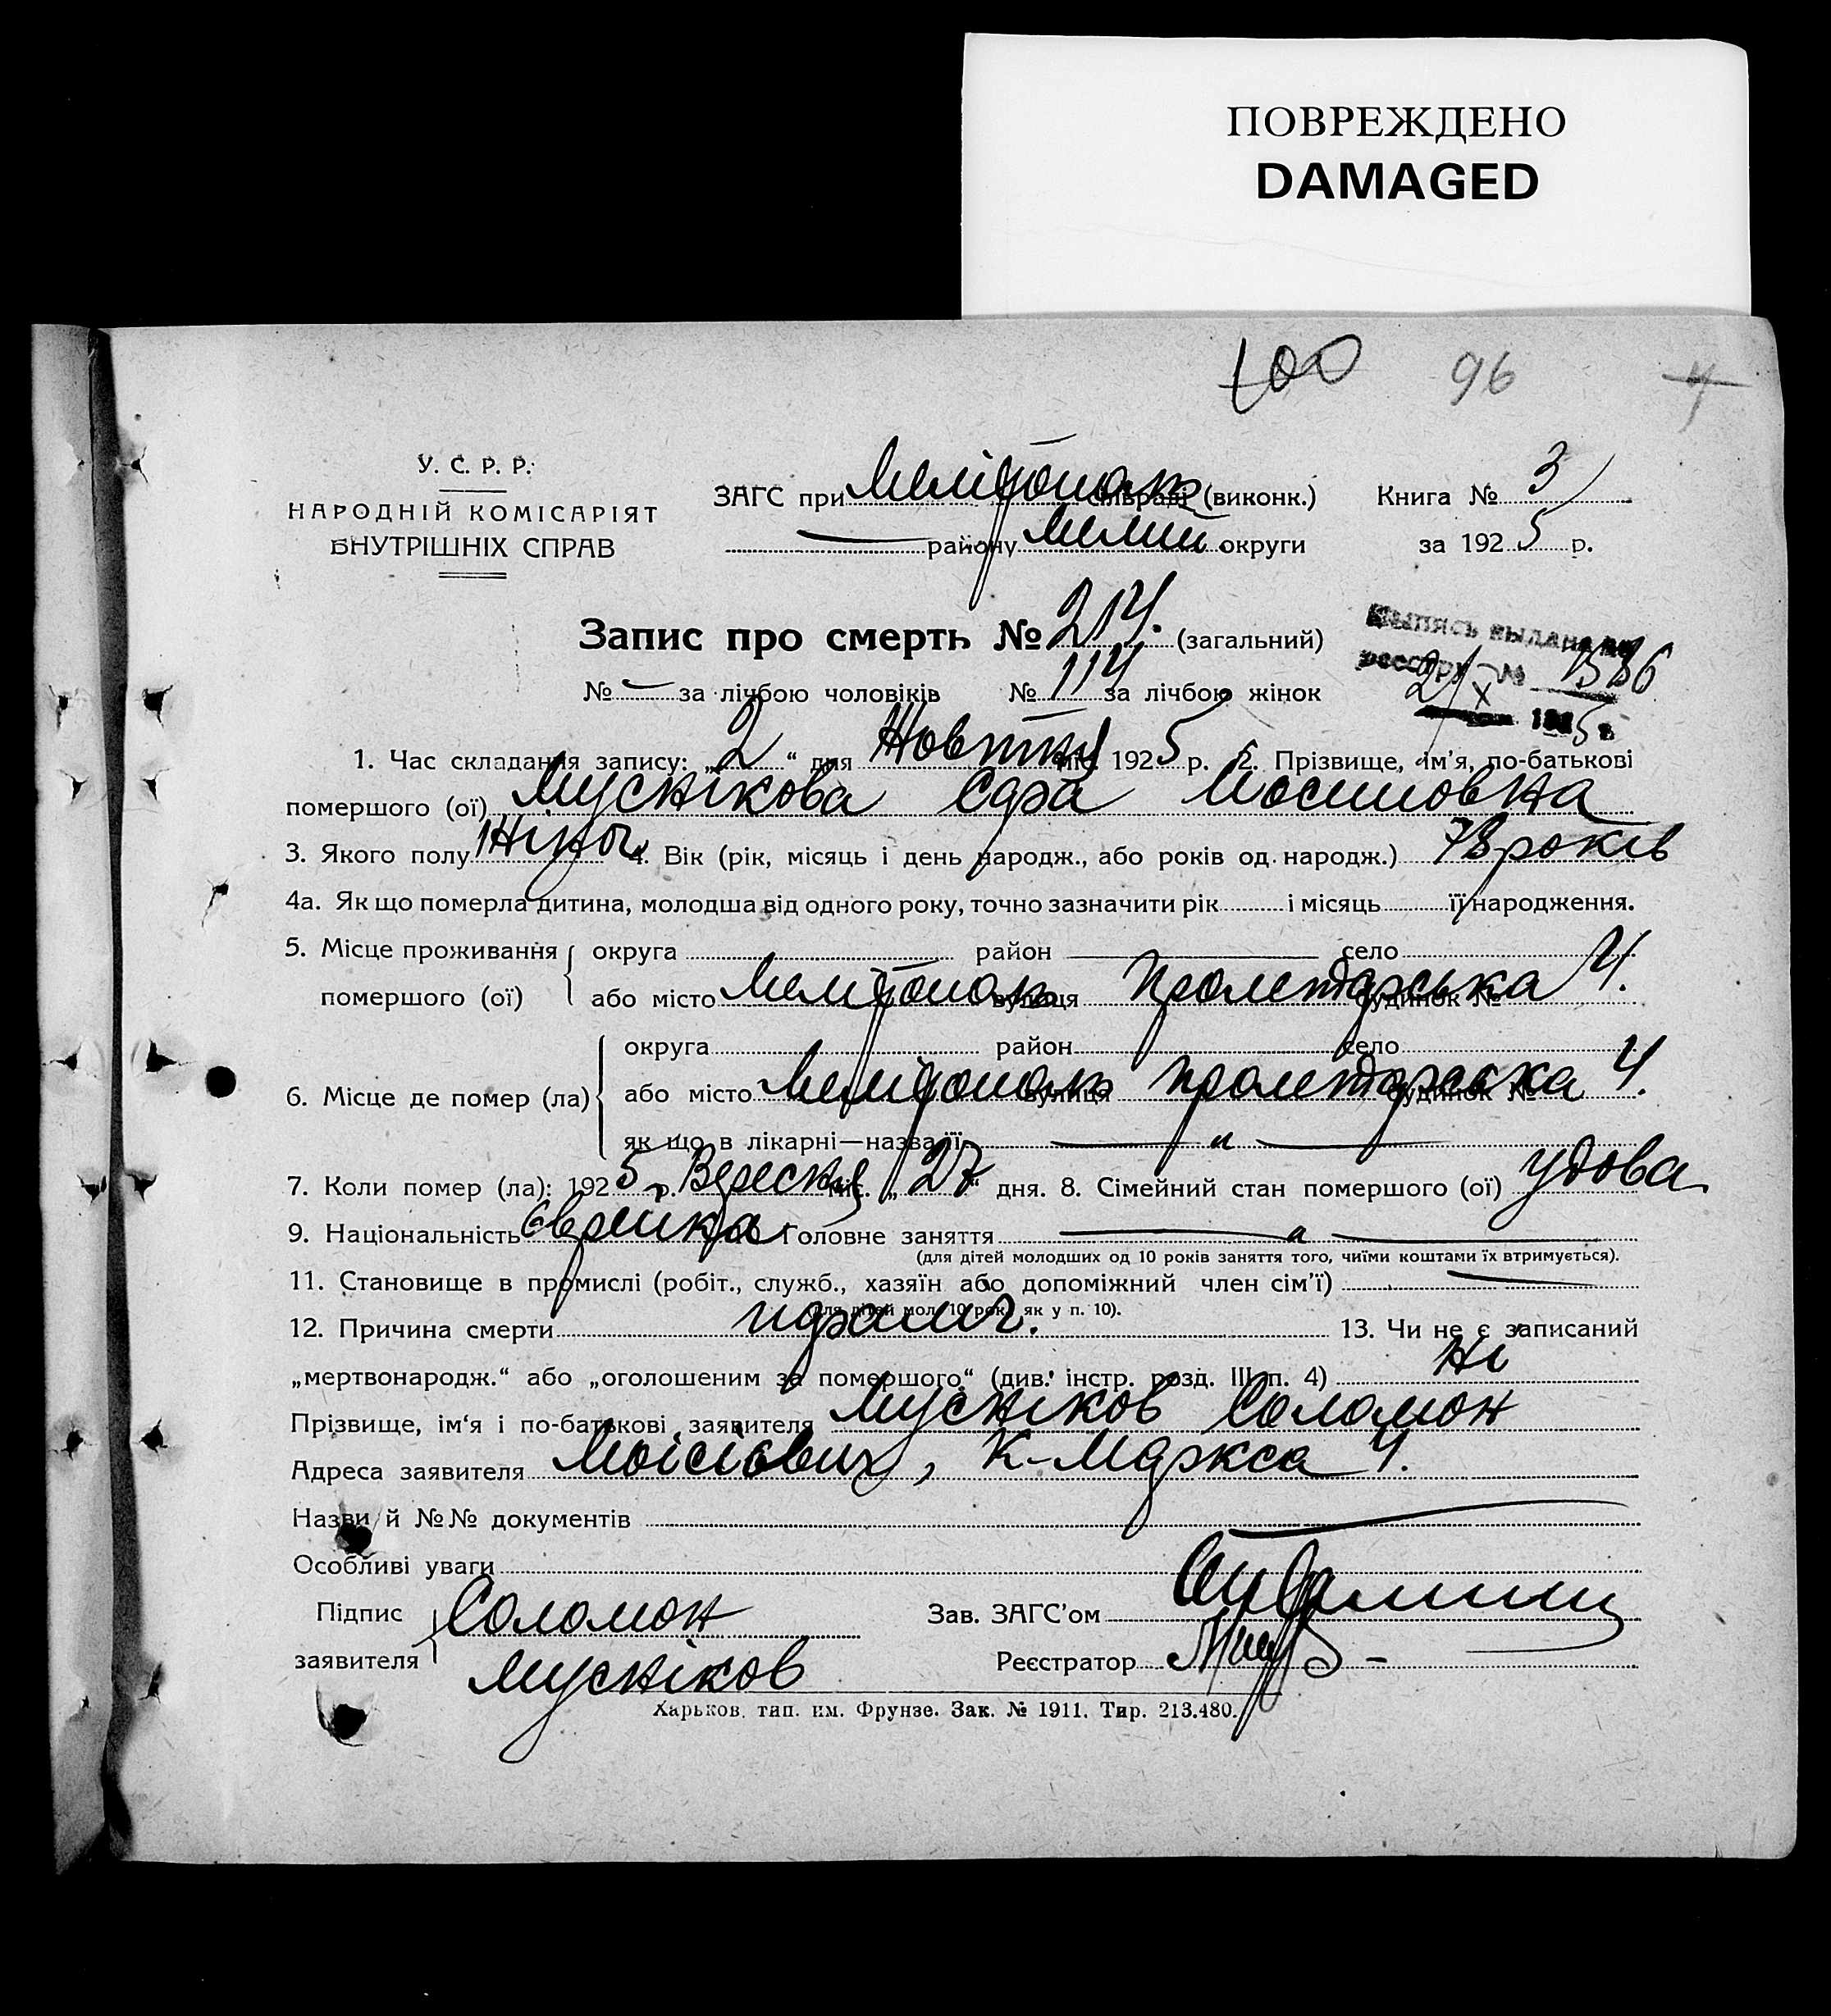 ПОВРЕЖДЕНО
DAMAGED
100 96 4
У. С. Р. Р.
НАРОДНІЙ КОМІСАРІЯТ
ВНУТРІШНІХ СПРАВ
ЗАГС при Мелітополь сільраді (виконк.) Книга № 3
— району Мелит округи за 1925 р.
Запис про смерть № 214. (загальний)
№ — за лічбою чоловіків № 114 за лічбою жінок
Выпись выдана по
реестру № 1536
21/X 1925 г.
1. Час складання запису: „2“ дня Жовтня міс. 1925 р. 2. Прізвище, ім'я, по-батькові
помершого (ої) Муснікова Сара Мосиповна
3. Якого полу Жіноч. 4. Вік (рік, місяць і день народж., або років од народж.) 78 років
4а. Як що померла дитина, молодша від одного року, точно зазначити рік і місяць її народження.
5. Місце проживання округа район — село
помершого (ої) або місто Мелітополь вулиця Пролетарська будинок № 4.
округа район село
6. Місце де помер (ла) або місто Мелітополь вулиця Пролетарська будинок № 4.
як що в лікарні—назва її — „ —
7. Коли помер (ла): 1925 р. Вересня міс. „27“ дня. 8. Сімейний стан помершого (ої) удова
9. Національність Єврейка 10. Головне заняття — „ —
(для дітей молодших од 10 років заняття того, чиїми коштами їх втримується).
11. Становище в промислі (робіт., служб., хазяїн або допоміжний член сім'ї) —
(для дітей мол. 10 рок. як у п. 10).
12. Причина смерти 13. Чи не є записаний
„мертвонародж.“ або „оголошеним за помершого“ (див. інстр. розд. III п. 4) Ні
Прізвище, ім'я і по-батькові заявителя Мусніков Соломон
Адреса заявителя Моісієвич, К-Маркса 4.
Назви й №№ документів —
Особливі уваги
Підпис Соломон Зав. ЗАГС'ом
заявителя Мусніков Реєстратор
Харьков. тип. им. Фрунзе. Зак. № 1911. Тир. 213.480.